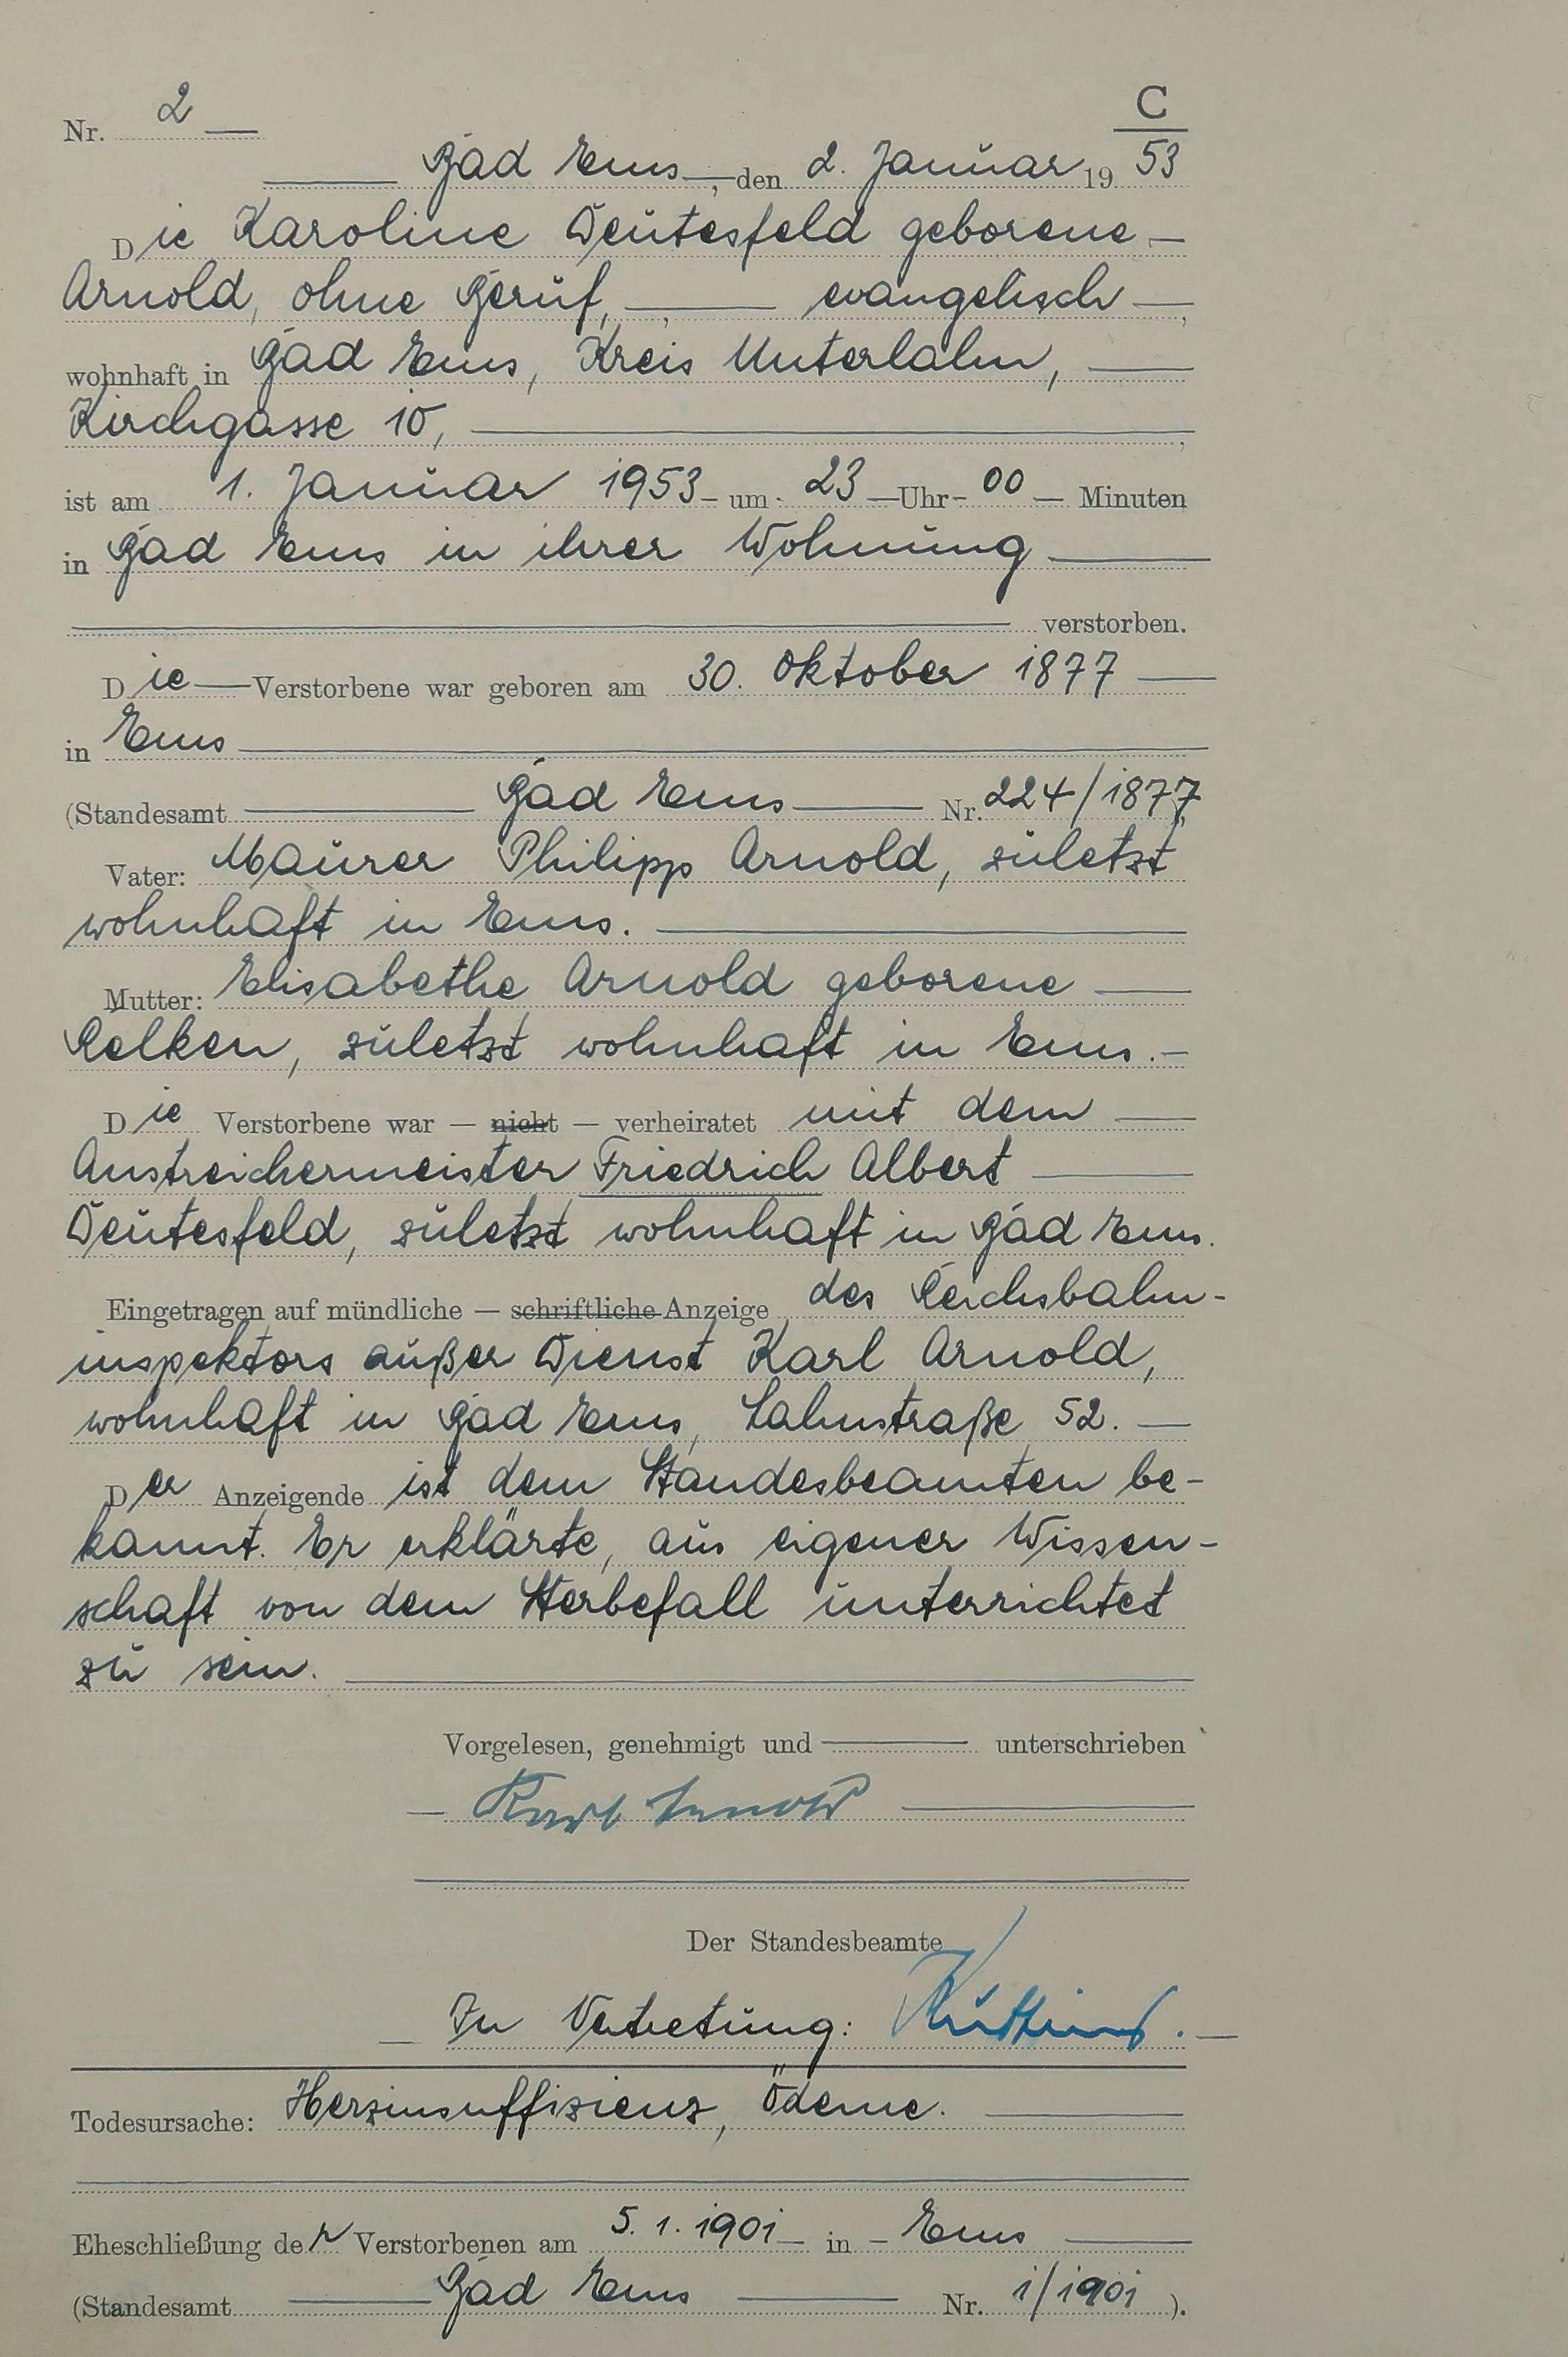 Nr. 2
C
Bad Ems, den 2. Januar 1953
Die Karoline Deutesfeld geborene
Arnold, ohne Beruf, evangelisch,
wohnhaft in Bad Ems, Kreis Unterlahn,
Kirchgasse 10,
ist am 1. Januar 1953 um 23 Uhr 00 Minuten
in Bad Ems in ihrer Wohnung
verstorben.
Die Verstorbene war geboren am 30. Oktober 1877
in Ems
(Standesamt Bad Ems Nr. 224/1877
Vater: Maurer Philipp Arnold, zuletzt
wohnhaft in Ems.
Mutter: Elisabethe Arnold geborene
Relken, zuletzt wohnhaft in Ems.
Die Verstorbene war — nicht — verheiratet mit dem
Anstreichermeister Friedrich Albert
Deutesfeld, zuletzt wohnhaft in Bad Ems.
Eingetragen auf mündliche — schriftliche Anzeige des Reichsbahn-
inspektors außer Dienst Karl Arnold,
wohnhaft in Bad Ems, Lahnstraße 52.
Der Anzeigende ist dem Standesbeamten be-
kannt. Er erklärte, aus eigener Wissen-
schaft von dem Sterbefall unterrichtet
zu sein.
Vorgelesen, genehmigt und unterschrieben
Karl Arnold
Der Standesbeamte
In Vertretung:
Todesursache: Herzinsuffizienz, Ödeme.
Eheschließung der Verstorbenen am 5.1.1901 in Ems
(Standesamt Bad Ems Nr. 1/1901 ).